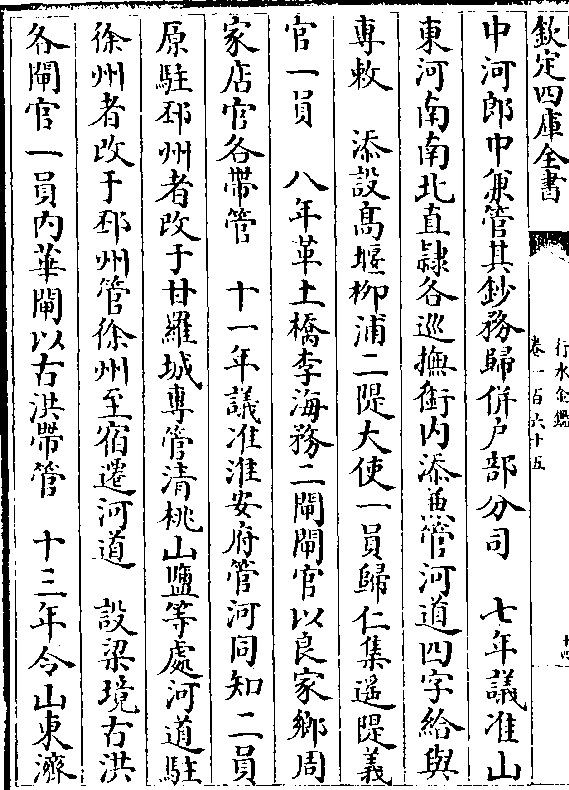 欽定四庫全書
行水金鑑
卷一百六十五
十四
中河郎中兼管其鈔務歸併户部分司　七年議准山
東河南南北直隷各巡撫銜内添兼管河道四字給與
専敕　添設髙堰柳浦二隄大使一員歸仁集遥隄義
官一員　八年革土橋李海務二閘閘官以良家鄉周
家店官各帶管　十一年議准淮安府管河同知二員
原駐邳州者改于甘羅城専管清桃山鹽等處河道駐
徐州者改于邳州管徐州至宿遷河道　設梁境古洪
各閘官一員内華閘以古洪帶管　十三年令山東濟